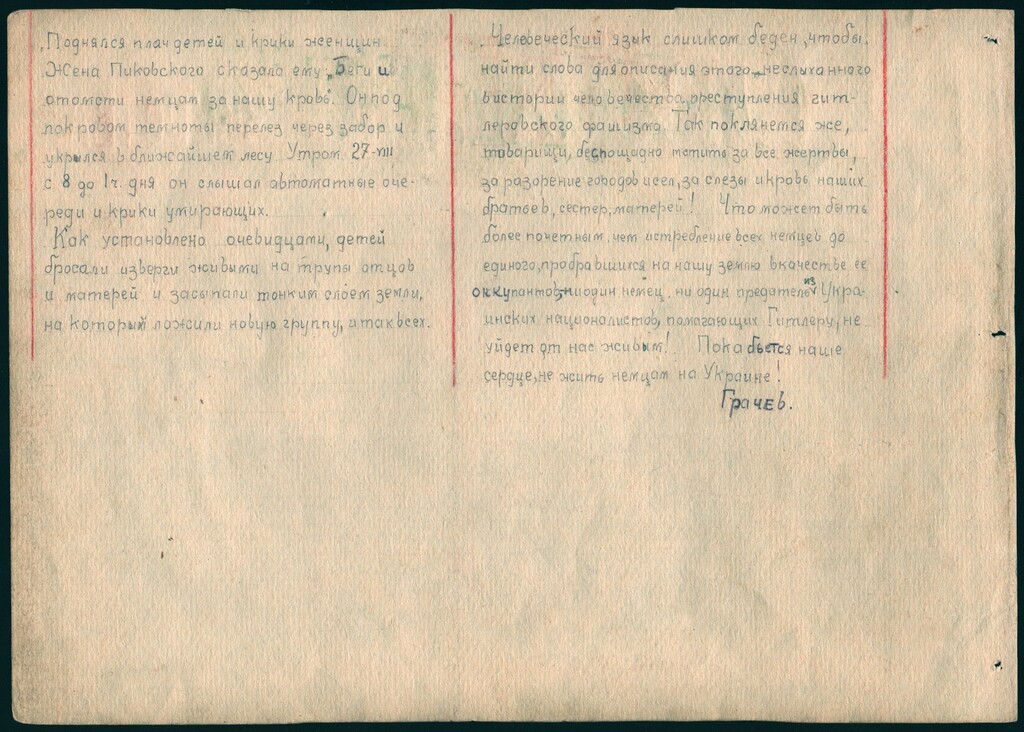 Поднялся плач детей и крики женщин.
Жена Пиковского сказала ему „Беги и
отомсти немцам за нашу кровь". Он под
покровом темноты перелез через забор и
укрылся в ближайшем лесу. Утром 27-го
с 8 до 1 ч. дня он слышал автоматные оче-
реди и крики умирающих.
Как установлено очевидцами, детей
бросали изверги живыми на трупы отцов
и матерей и засыпали тонким слоем земли,
на который ложили новую группу, и так всех.
Человеческий язык слишком беден, чтобы
найти слова для описания этого неслыханного
в истории человечества преступления гит-
леровского фашизма. Так поклянемся же,
товарищи, беспощадно мстить за все жертвы,
за разорение городов и сел, за слезы и кровь наших
братьев, сестер, матерей! Что может быть
более почетным, чем истребление всех немцев до
единого, пробравшихся на нашу землю в качестве ее
оккупантов, ни один немец, ни один предатель из Укра-
инских националистов, помагающих Гитлеру, не
уйдет от нас живым! Пока бьется наше
сердце, не жить немцам на Украине!
Грачев.